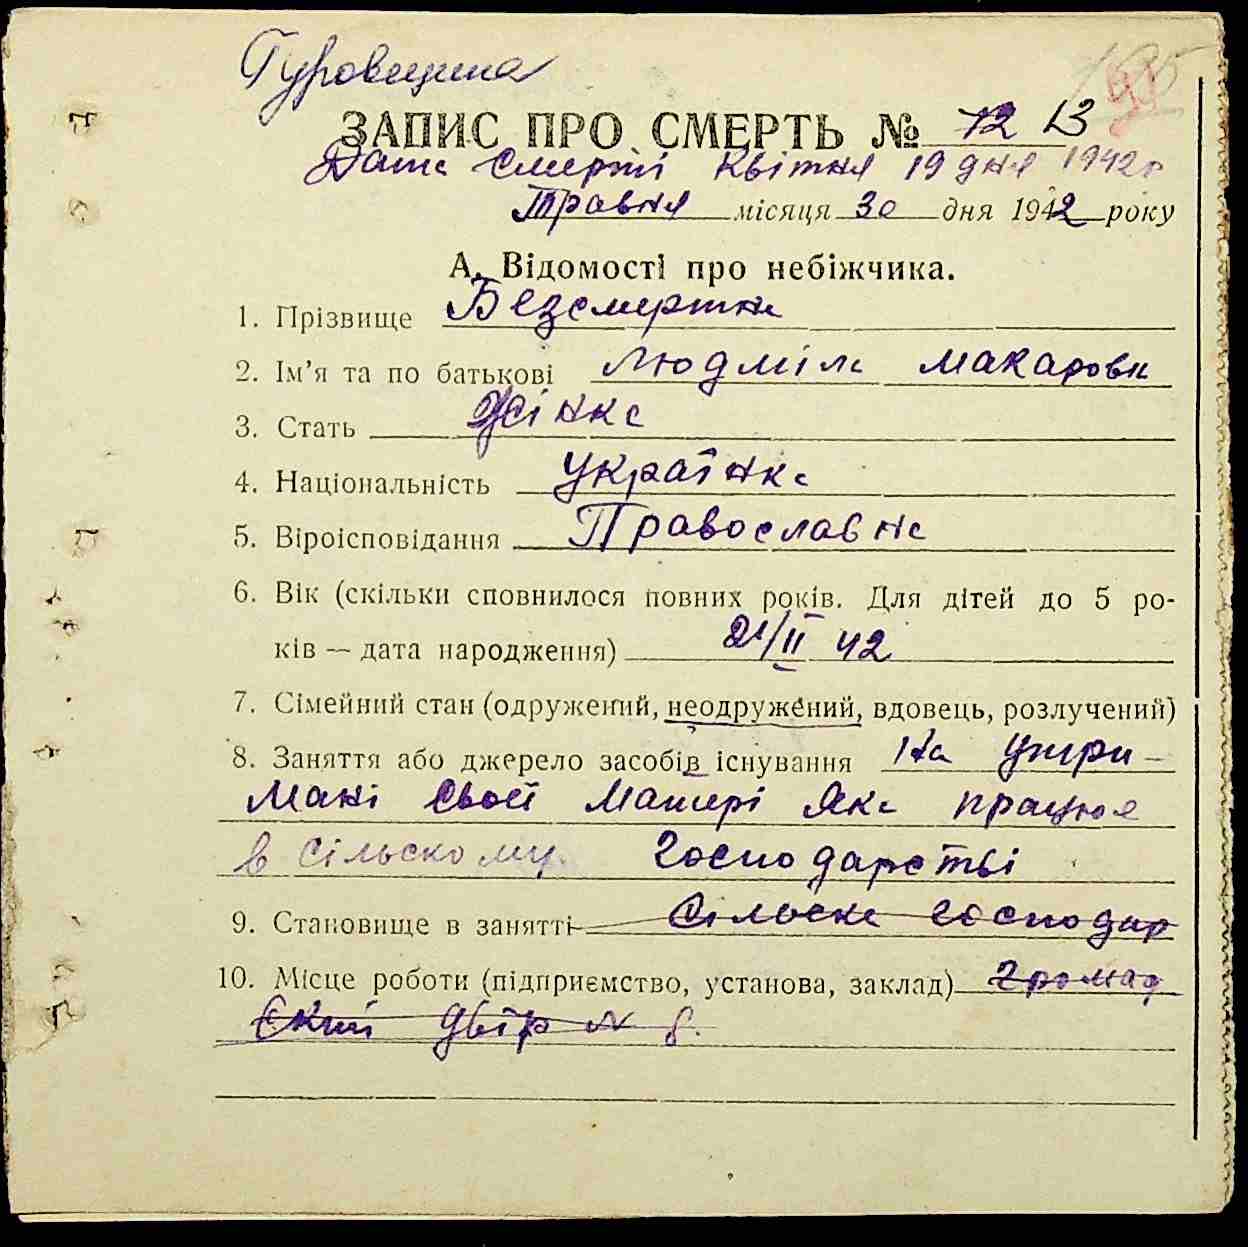 Гуровщина
ЗАПИС ПРО СМЕРТЬ № 12 13
Дата смерті квітня 19 дня 1942 р
Травня місяця 30 дня 1942 року
А. Відомості про небіжчика.
1. Прізвище Безсмертна
2. Ім’я та по батькові Людміла Макаровна
3. Стать Жінка
4. Національність Українка
5. Віроісповідання Православна
6. Вік (скільки сповнилося повних років. Для дітей до 5 ро-
ків — дата народження) 21/II 42
7. Сімейний стан (одружений, неодружений, вдовець, розлучений)
8. Заняття або джерело засобів існування На утри-
мані своєй матері яка працює
в сільскому господарстві
9. Становище в занятті Сільске господар
10. Місце роботи (підприємство, установа, заклад) Громад
ский двір № 8.